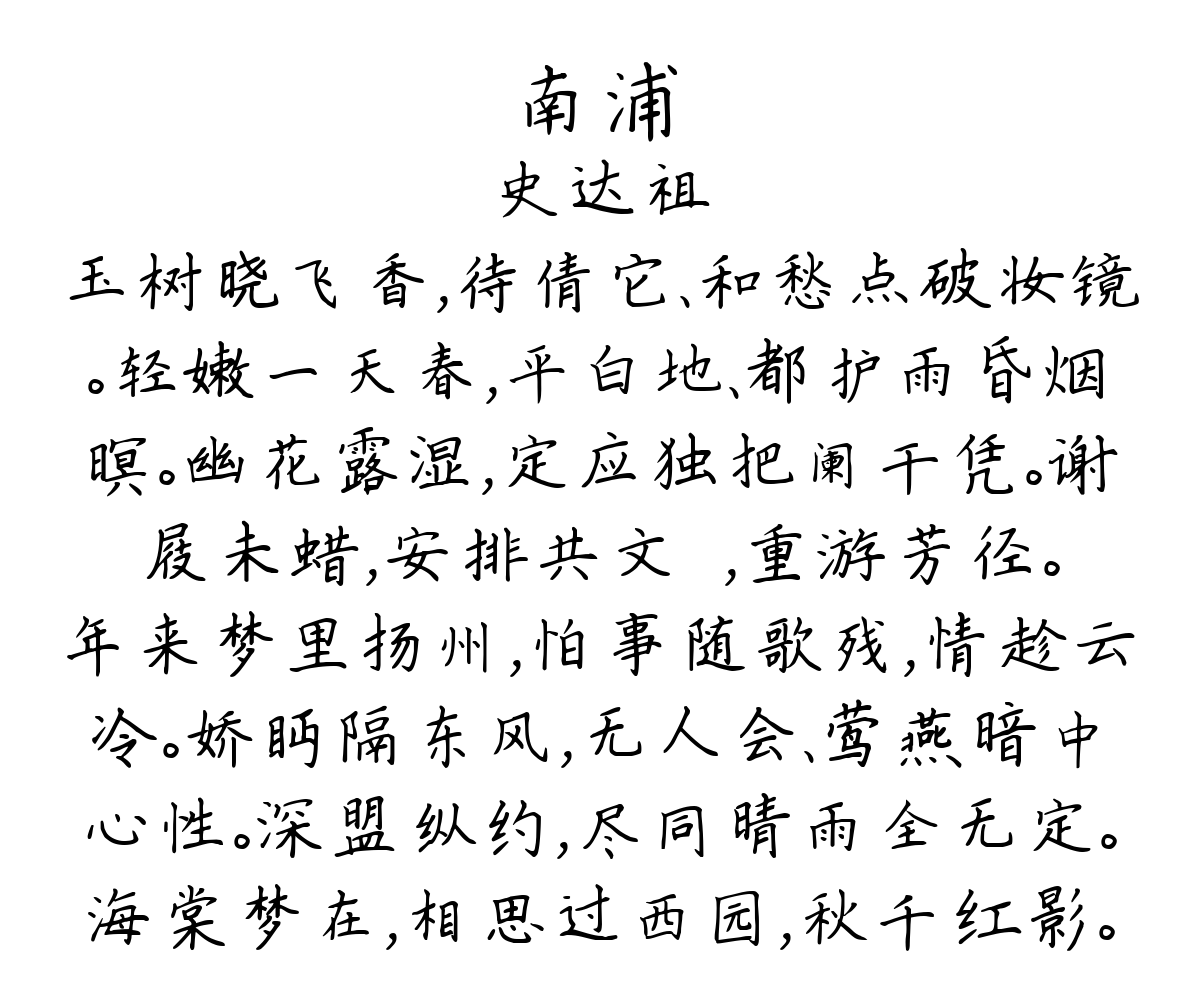 南浦
史达祖
玉树晓飞香,待倩它、和愁点破妆镜
。轻嫩一天春,平白地、都护雨昏烟
暝。幽花露湿,定应独把阑干凭。谢
屐未蜡,安排共文 ,重游芳径。
年来梦里扬州,怕事随歌残,情趁云
冷。娇眄隔东风,无人会、莺燕暗中
心性。深盟纵约,尽同晴雨全无定。
海棠梦在,相思过西园,秋千红影。